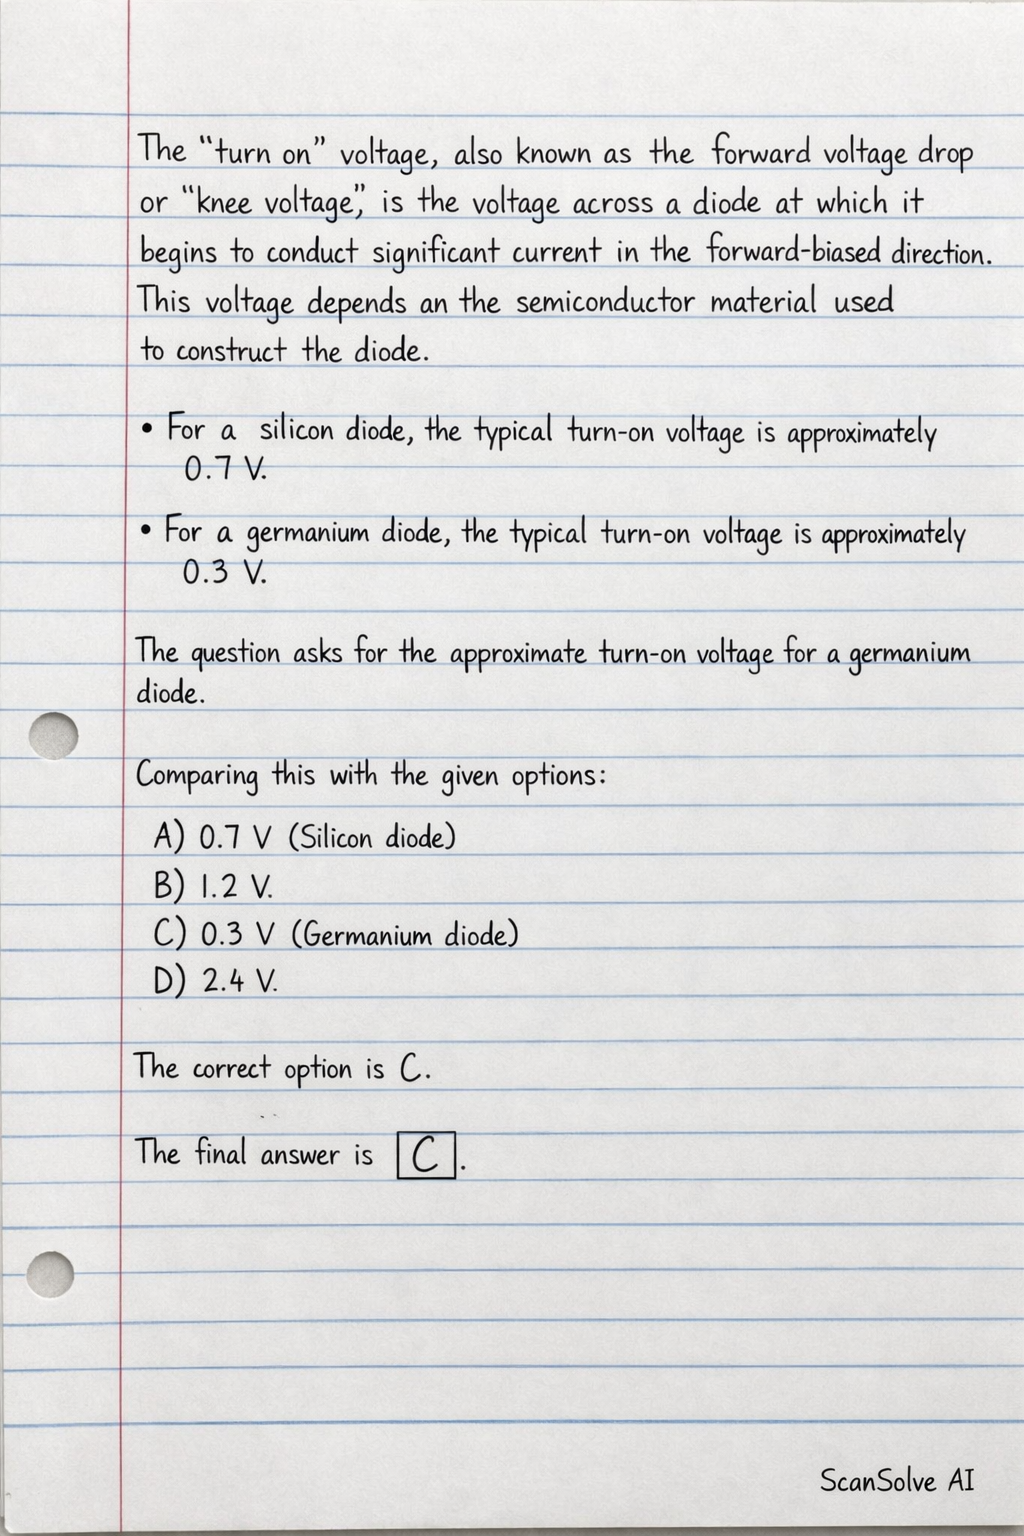 The “turn on” voltage, also known as the forward voltage drop
or “knee voltage,” is the voltage across a diode at which it
begins to conduct significant current in the forward-biased direction.
This voltage depends an the semiconductor material used
to construct the diode.
• For a silicon diode, the typical turn-on voltage is approximately
0.7 V.
• For a germanium diode, the typical turn-on voltage is approximately
0.3 V.
The question asks for the approximate turn-on voltage for a germanium
diode.
Comparing this with the given options:
A) 0.7 V (Silicon diode)
B) 1.2 V.
C) 0.3 V (Germanium diode)
D) 2.4 V.
The correct option is C.
The final answer is C.
ScanSolve AI